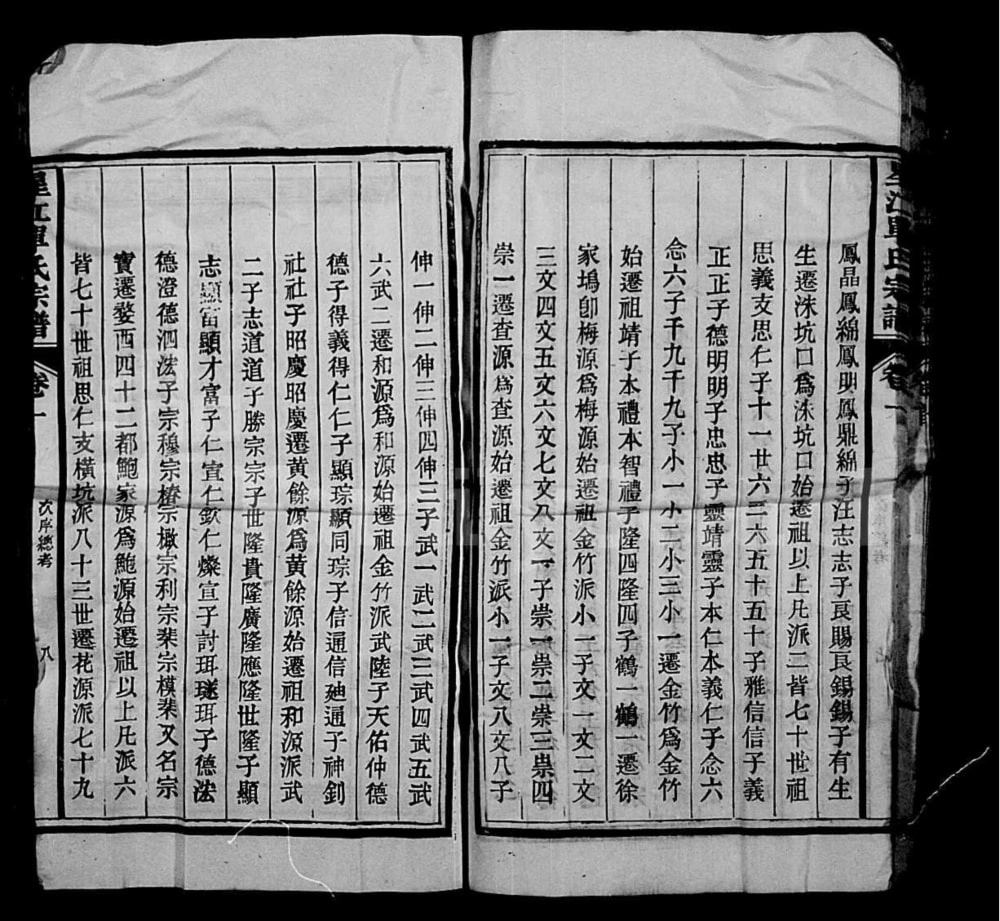 星江單氏宗譜
卷一
鳳晶鳳綿鳳明鳳鼎綿子汪志志子良賜良錫錫子有生
生遷洙坑口為洙坑口始遷祖以上凡派二皆七十世祖
思義支思仁子十一廿六三六五十五十子雅信信子義
正正子德明明子忠忠子靈靖靈子本仁本義仁子念六
念六子千九千九子小一小二小三小一遷金竹為金竹
始遷祖靖子本禮本智禮子隆四隆四子鶴一鶴一遷徐
家塢卽梅源為梅源始遷祖金竹派小一子文一文二文
三文四文五文六文七文八文一子崇一崇二崇三崇四
崇一遷查源為查源始遷祖金竹派小一子文八文八子
伸一伸二伸三伸四伸三子武一武二武三武四武五武
六武二遷和源為和源始遷祖金竹派武陸子天佑仲德
德子得義得仁仁子顯琮顯同琮子信通信廸通子神釗
社社子昭慶昭慶遷黃餘源為黃餘源始遷祖和源派武
二子志道道子勝宗宗子世隆貴隆廣隆應隆世隆子顯
志顯富顯才富子仁宣仁欽仁燦宣子討珥璲珥子德法
德澄德泗法子宗穆宗椿宗橄宗利宗棐宗模棐又名宗
寶遷婺西四十二都鮑家源為鮑源始遷祖以上凡派六
皆七十世祖思仁支橫坑派八十三世遷花源派七十九
星江單氏宗譜
卷一
次序總考
八